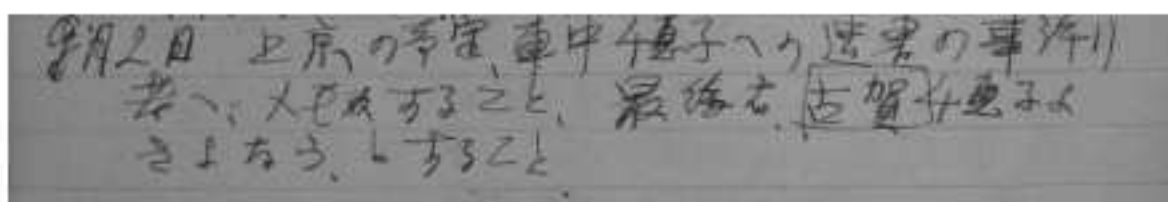 9月2日 上京の予定、車中千恵子への遺書の事済り
考へ、メモをすること、最後は、古賀千恵子よ
さよなう、とすること